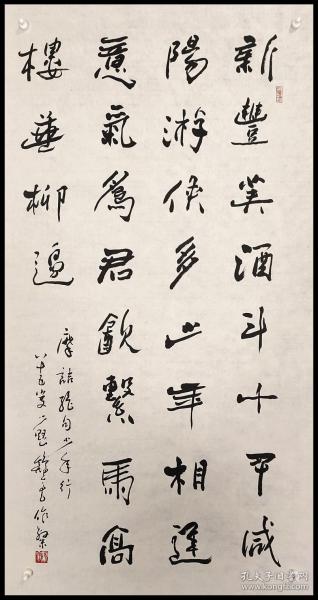 新豐美酒斗十千咸
陽游俠多少年相逢
意氣爲君飲繫馬高
樓垂柳邊
摩詰絕句少年行
八十五叟
孔夫子旧书网